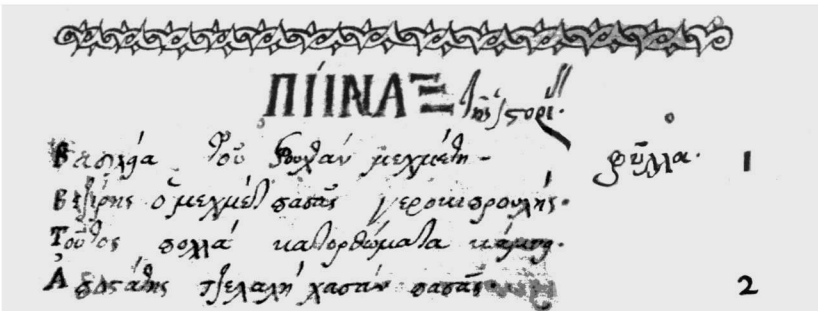 ΠΙΝΑΞ τῆς ἱστορί
Βασιλεία τοῦ σουλτάν μεχμέτη - φύλλα. 1
Βεζίρης ὁ μεχμὲτ πασᾶς γεροκιπρουλής.
Τοῦτος πολλὰ κατορθώματα
Ἀποστάτης τζελαλὴ χασὰν πασᾶς. 2